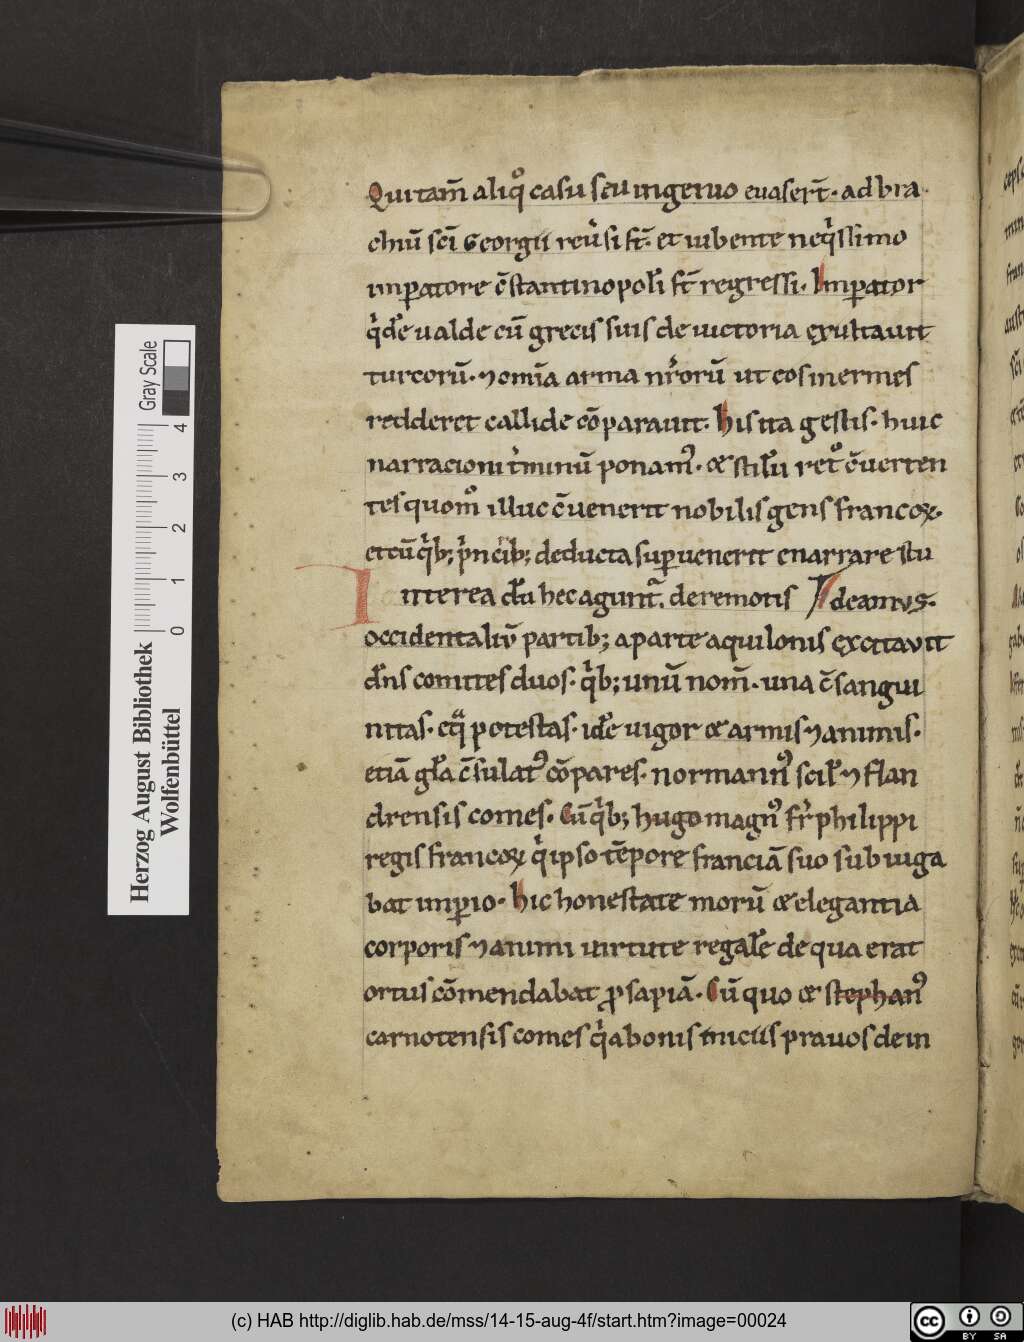 Qui tam̄ aliqͦ casu seu ingenio euaser̄t. ad bra
chiū sc̄i Georgii reuͥsi st̄. et iubente neqͥssimo
imꝑatore c̄stantinopoli st̄ regressi. Imꝑator
qͥdē ualde cū grecis suis de uictoria exultauit
turcorū. ⁊ om̄ia arma nr̄orū ut eos inermes
redderet callide cōparauit. his ita gestis. huic
narracioni tͥminū ponamꝰ. & stilū retͦ c̄uerten
tes quomͦ illuc c̄uenerit nobilis gens francoꝝ.
et cū qͥb; pͥncib; deducta suꝑuenerit enarrare stu
deamus.
Interea dū hec agunt᷑. de remotis
occidentaliū partib; a parte aquilonis excitauit
dn̄s comites duos. qͥb; unū nom̄. una c̄sangui
nitas. eqͣ potestas. idē uigor & armis ⁊ animis.
etiā gl̄a c̄sulatꝰ cōpares. normannꝰ scil̄ ⁊ flan
drensis comes. Cū qͥb; hugo magnꝰ fr̄ philippi
regis francoꝝ qͥ ipso tēpore franciā suo subiuga
bat imꝑio. hic honestate morū & elegantia
corporis ⁊ animi uirtute regalē de qua erat
ortus cōmendabat ꝓsapiā. Cū quo & stephanꝰ
carnotensis comes qͥ a bonis iniciis prauos de in
Herzog August Bibliothek
Wolfenbüttel
Gray Scale
0 1 2 3 4
(c) HAB http://diglib.hab.de/mss/14-15-aug-4f/start.htm?image=00024
cc BY SA